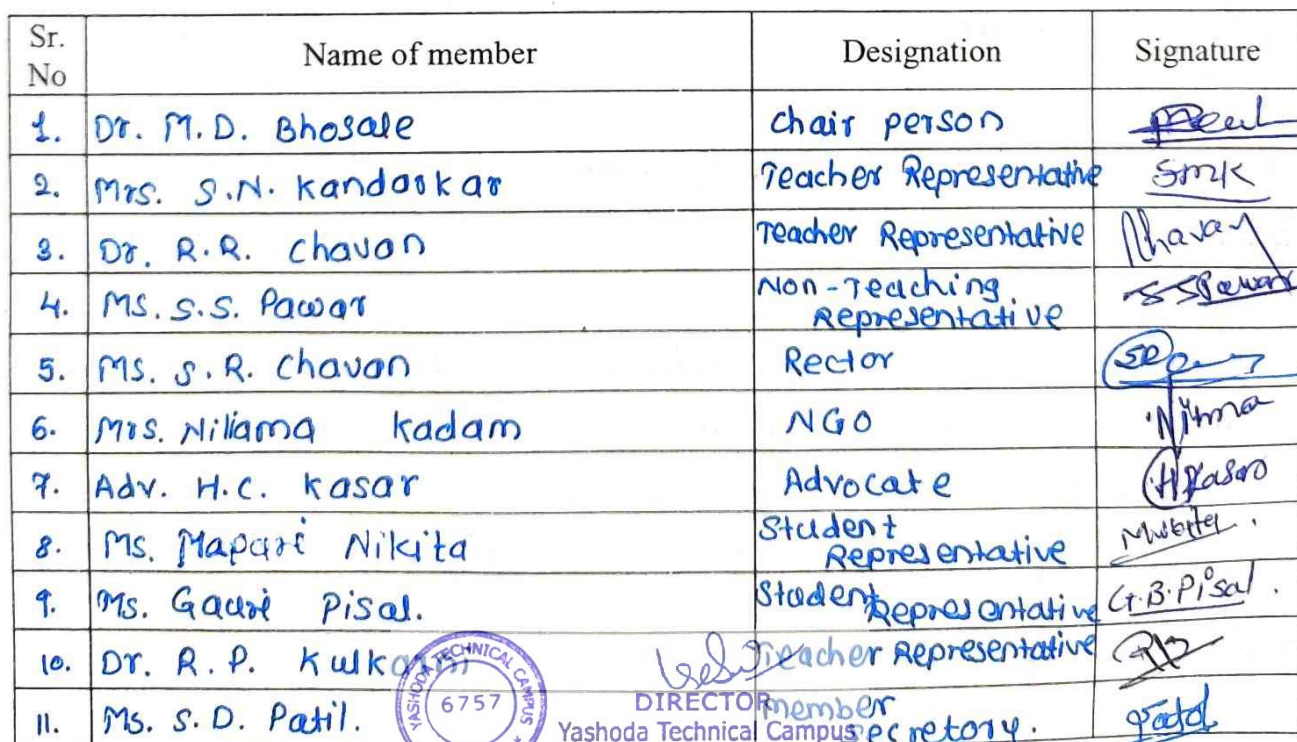 Sr. No Name of member Designation Signature
1. Dr. M.D. Bhosale Chair person
2. Mrs. S.N. Kandarkar Teacher Representative SMK
3. Dr. R.R. Chavan Teacher Representative Chavan
4. Ms. S.S. Pawar Non-Teaching Representative SSPawar
5. Ms. S.R. Chavan Rector
6. Mrs. Niliama Kadam NGO
7. Adv. H.C. Kasar Advocate HKasar
8. Ms. Mapari Nikita Student Representative
9. Ms. Gauri Pisal. Student Representative G.B.Pisal.
10. Dr. R.P. Kulkarni Teacher Representative
11. Ms. S.D. Patil. member secretory. Patil
YASHODA TECHNICAL CAMPUS
6757
DIRECTOR
Yashoda Technical Campus